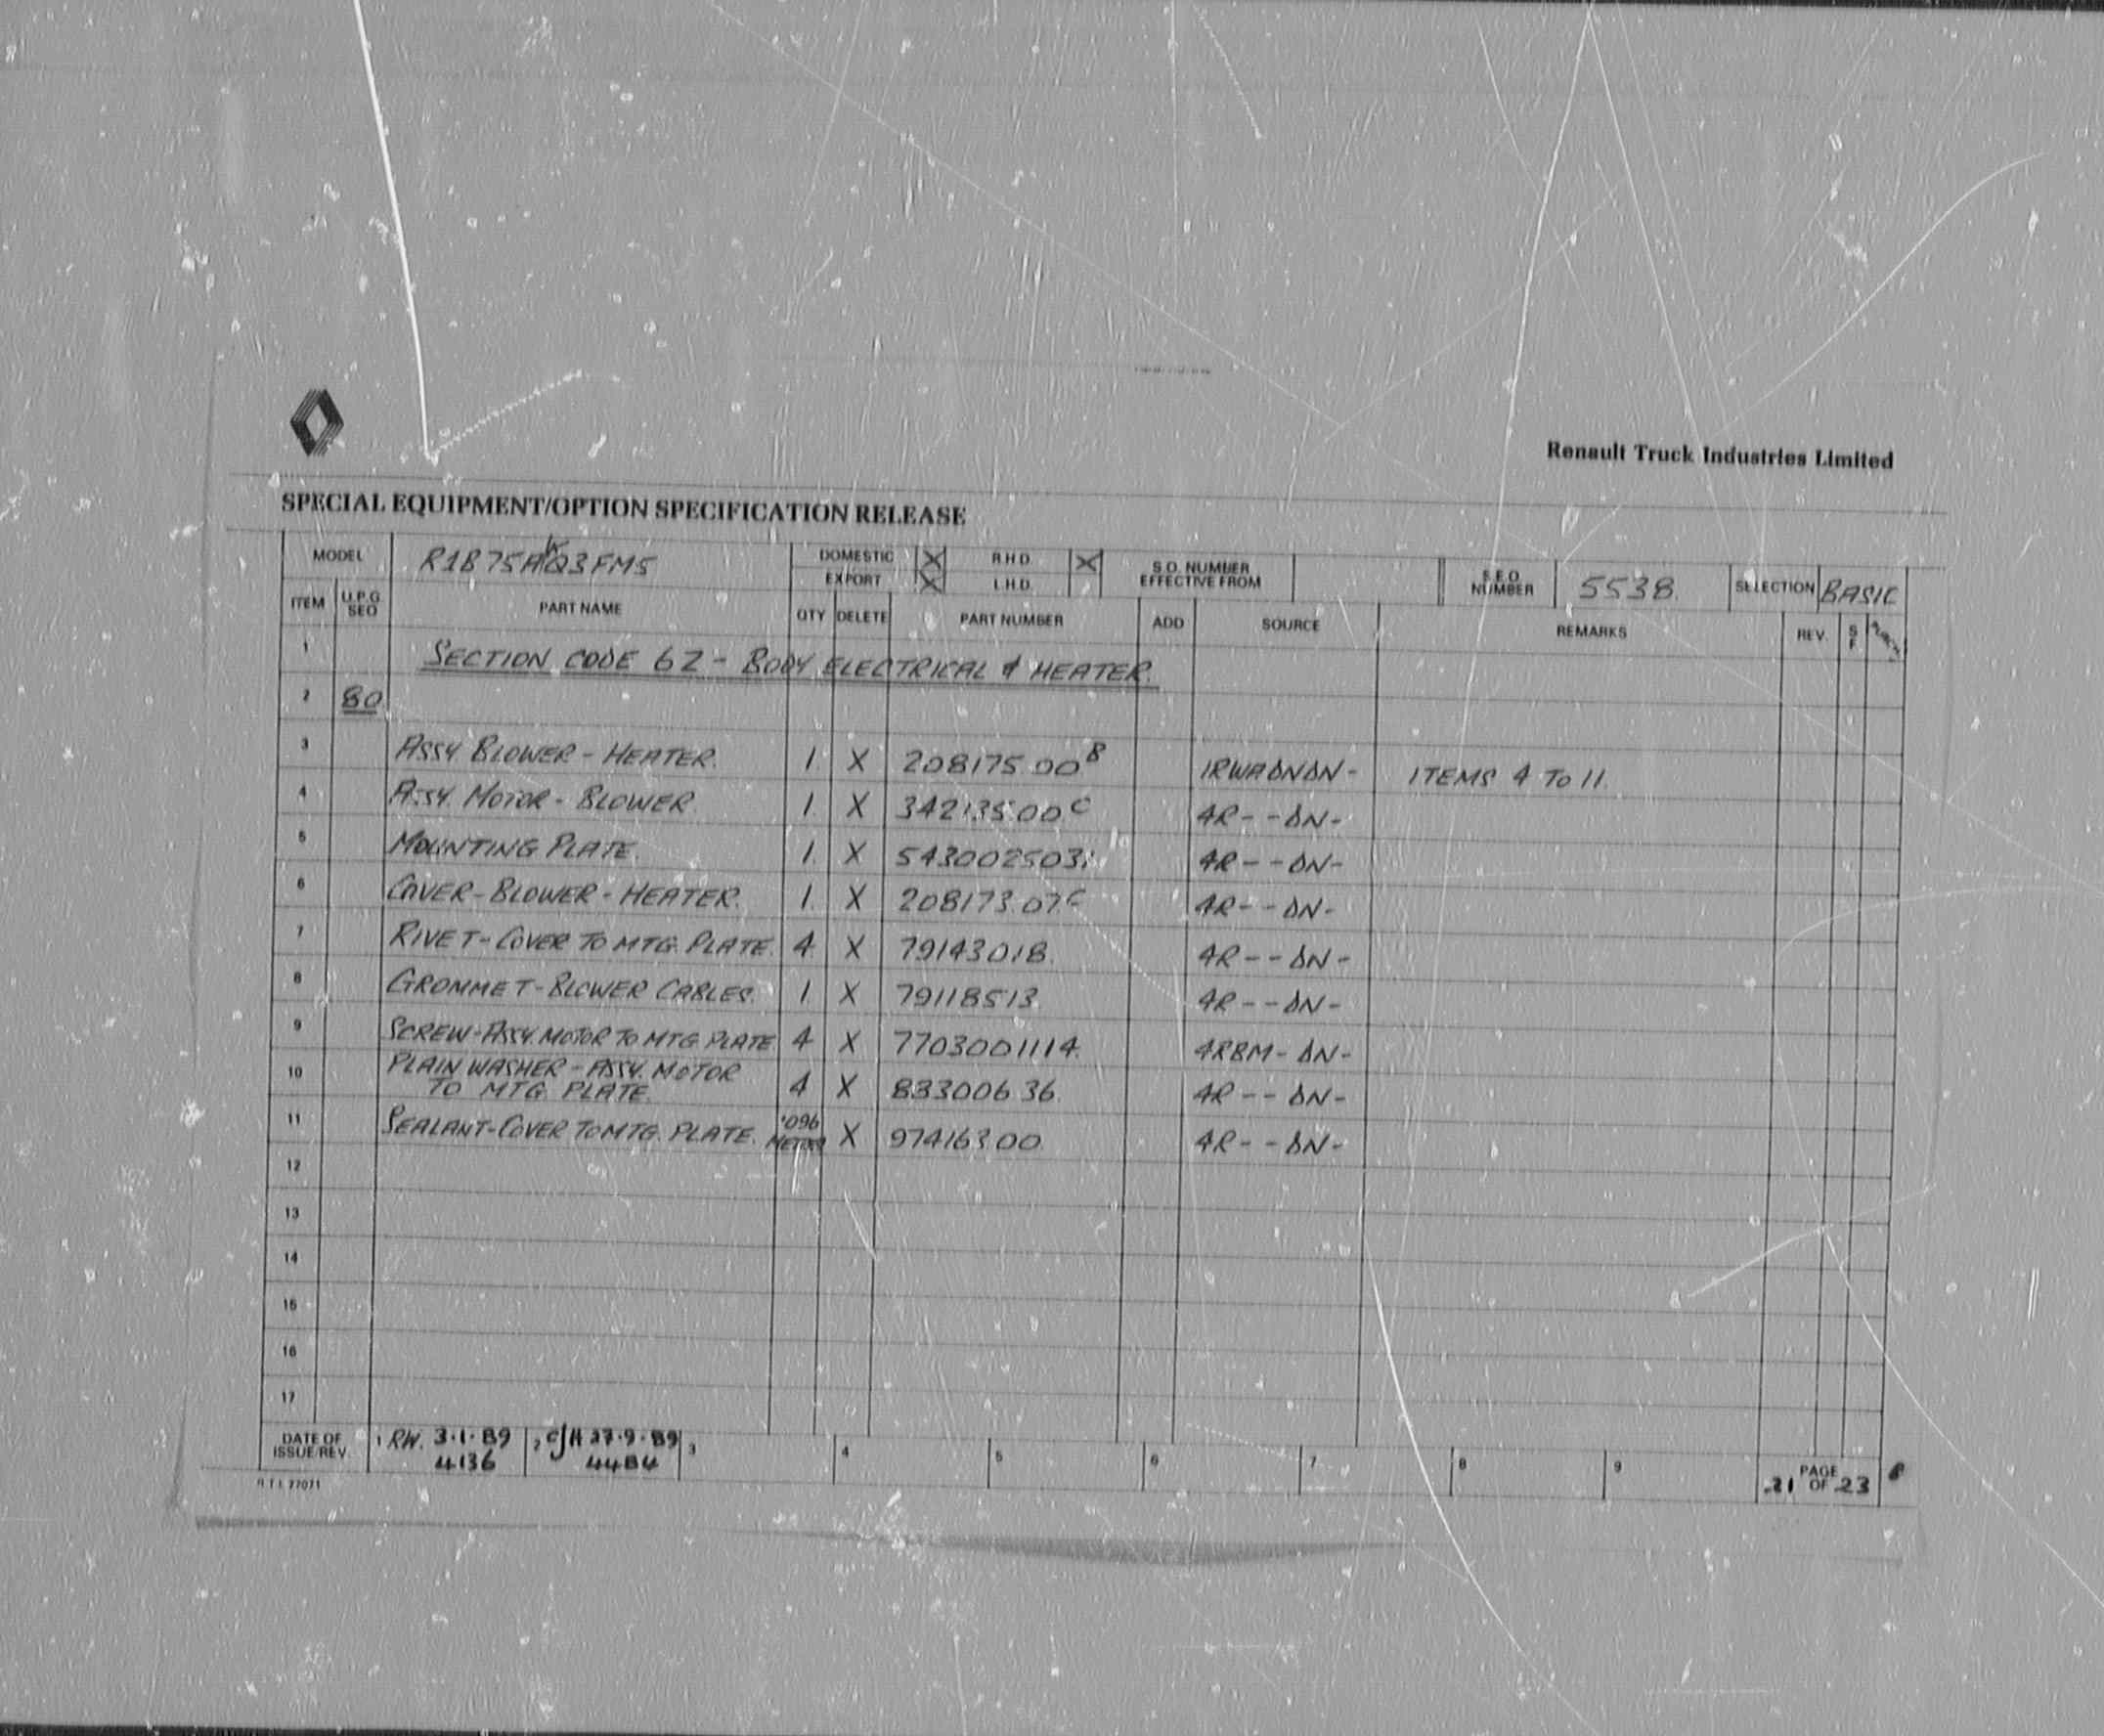 Renault Truck Industries Limited
SPECIAL EQUIPMENT/OPTION SPECIFICATION RELEASE
MODEL R1B75AQ3FM5 DOMESTIC X R.H.D. X S.O. NUMBER EFFECTIVE FROM S.E.O. NUMBER 5538. SELECTION BASIC
EXPORT X L.H.D.
ITEM U.P.G. SEO PART NAME QTY DELETE PART NUMBER ADD SOURCE REMARKS REV. S F
1 SECTION CODE 62 - BODY ELECTRICAL & HEATER.
2 80
3 ASSY BLOWER - HEATER. 1 X 208175.00 B 1RWAΔNΔN- ITEMS 4 TO 11.
4 ASSY. MOTOR - BLOWER. 1. X 342135.00 C 4R--ΔN-
5 MOUNTING PLATE. 1. X 5430025031 4R--ΔN-
6 COVER - BLOWER - HEATER. 1. X 208173.07 C 4R--ΔN-
7 RIVET - COVER TO MTG. PLATE. 4. X 79143018. 4R--ΔN-
8 GROMMET - BLOWER CABLES. 1 X 79118513. 4R--ΔN-
9 SCREW - ASSY. MOTOR TO MTG PLATE 4 X 7703001114. 4RBM-ΔN-
10 PLAIN WASHER - ASSY. MOTOR
TO MTG. PLATE. 4 X 83300636. 4R--ΔN-
11 SEALANT - COVER TO MTG. PLATE. ·096 X 974163.00. 4R--ΔN-
12
13
14
15
16
17
DATE OF ISSUE/REV. 1 RW. 3·1·89 2 CJH 27·9·89 3 4 5 6 7 8 9 PAGE
4136 4484 21 OF 23
R.T.I. 77071